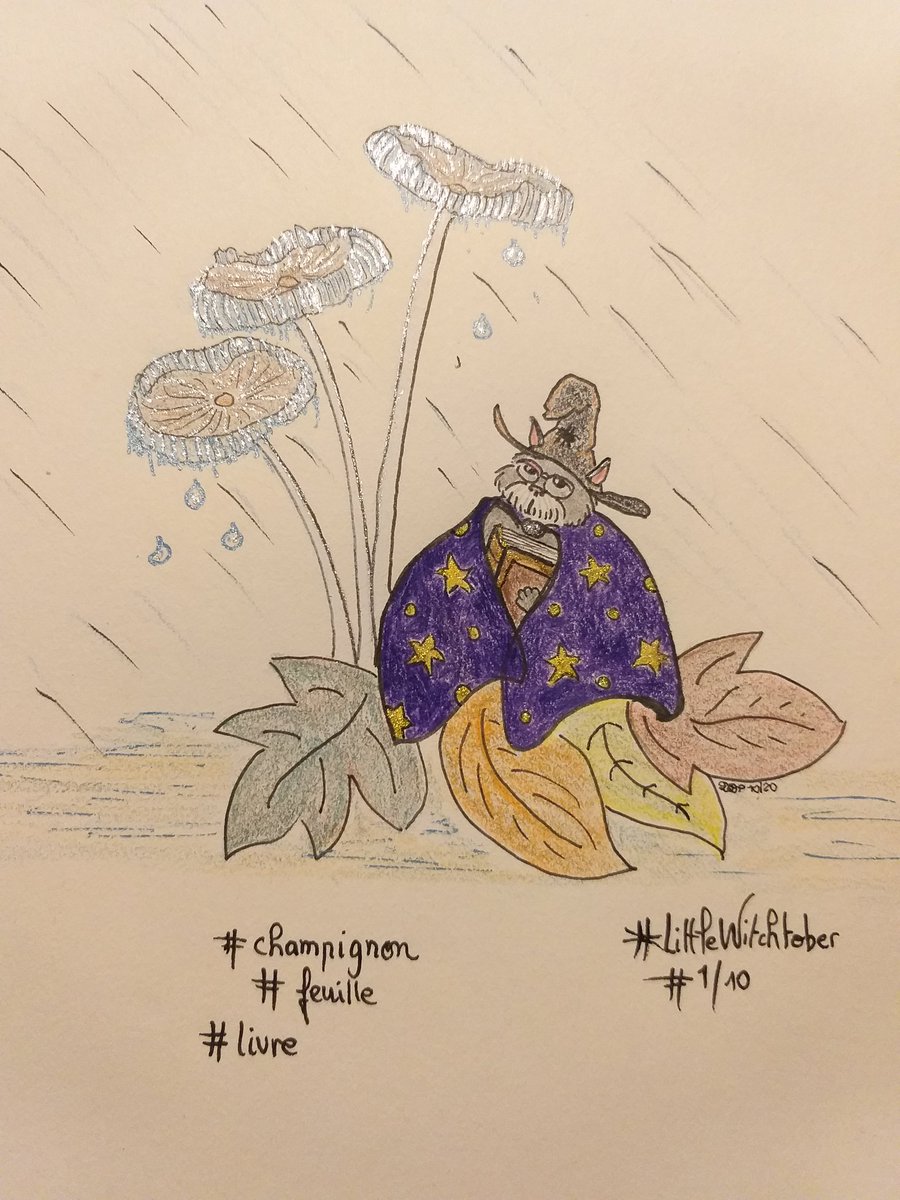 # champignon
# feuille
# livre
#LittleWitchtober
# 1/10